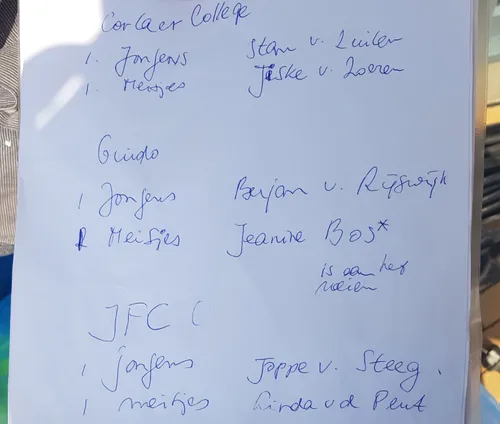 Corlaer College
1. Jongens Stan v. Luiten
1. Meisjes Jiske v. Zoeren
Guido
1 Jongens Benjan v. Rijswijk
1 Meisjes Jeanine Bos*
is aan het
roeien
JFC (
1 jongens Joppe v. Steeg.
1 meitjes Linda vd Peut